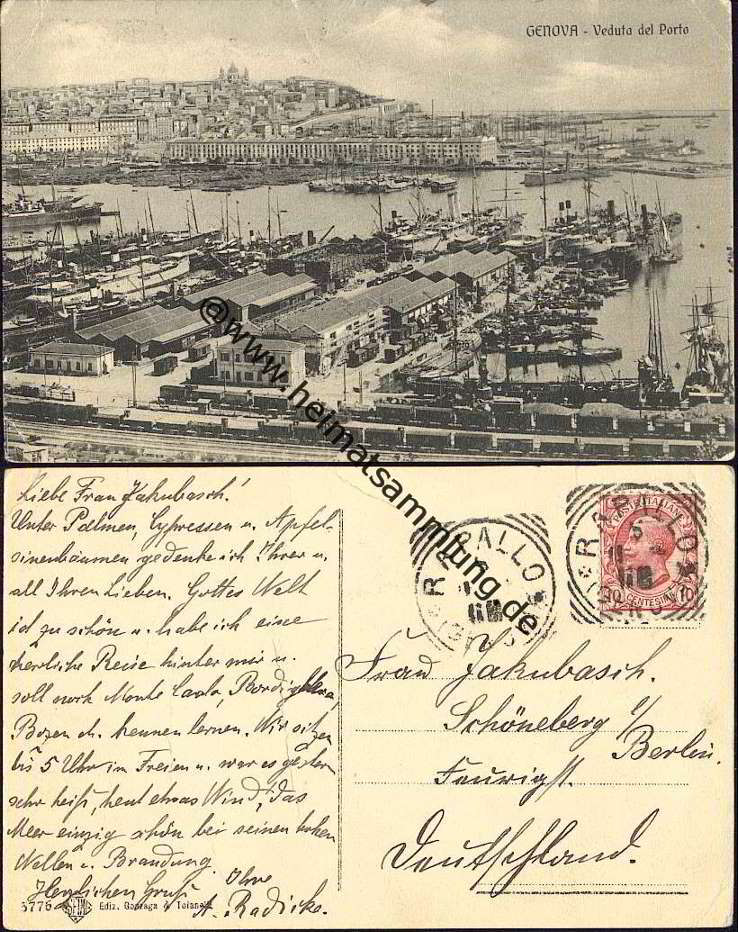 GENOVA - Veduta del Porto
@www.heimatsammlung.de
Liebe Frau Jakubasch!
Unter Palmen, Cypressen u. Apfel-
sinenbäumen gedenke ich Ihrer u.
all Ihren Lieben. Gottes Welt
ist zu schön u. habe ich eine
herrliche Reise hinter mir u.
soll noch Monte Carlo, Bordighera,
Bozen etc. kennen lernen. Wir sitzen
bis 5 Uhr im Freien u. war es gestern
sehr heiß, heut etwas Wind, das
Meer einzig schön bei seinen hohen
Wellen u. Brandung.
Herzlichen Gruß Ihre
A. Radicke.
5776 Ediz. Gonzaga &
RAPALLO
RAPALLO
POSTE ITALIANE
10 CENTESIMI 10
Frau Jakubasch.
Schöneberg b/
Berlin.
Feurigst.
Deutschland.